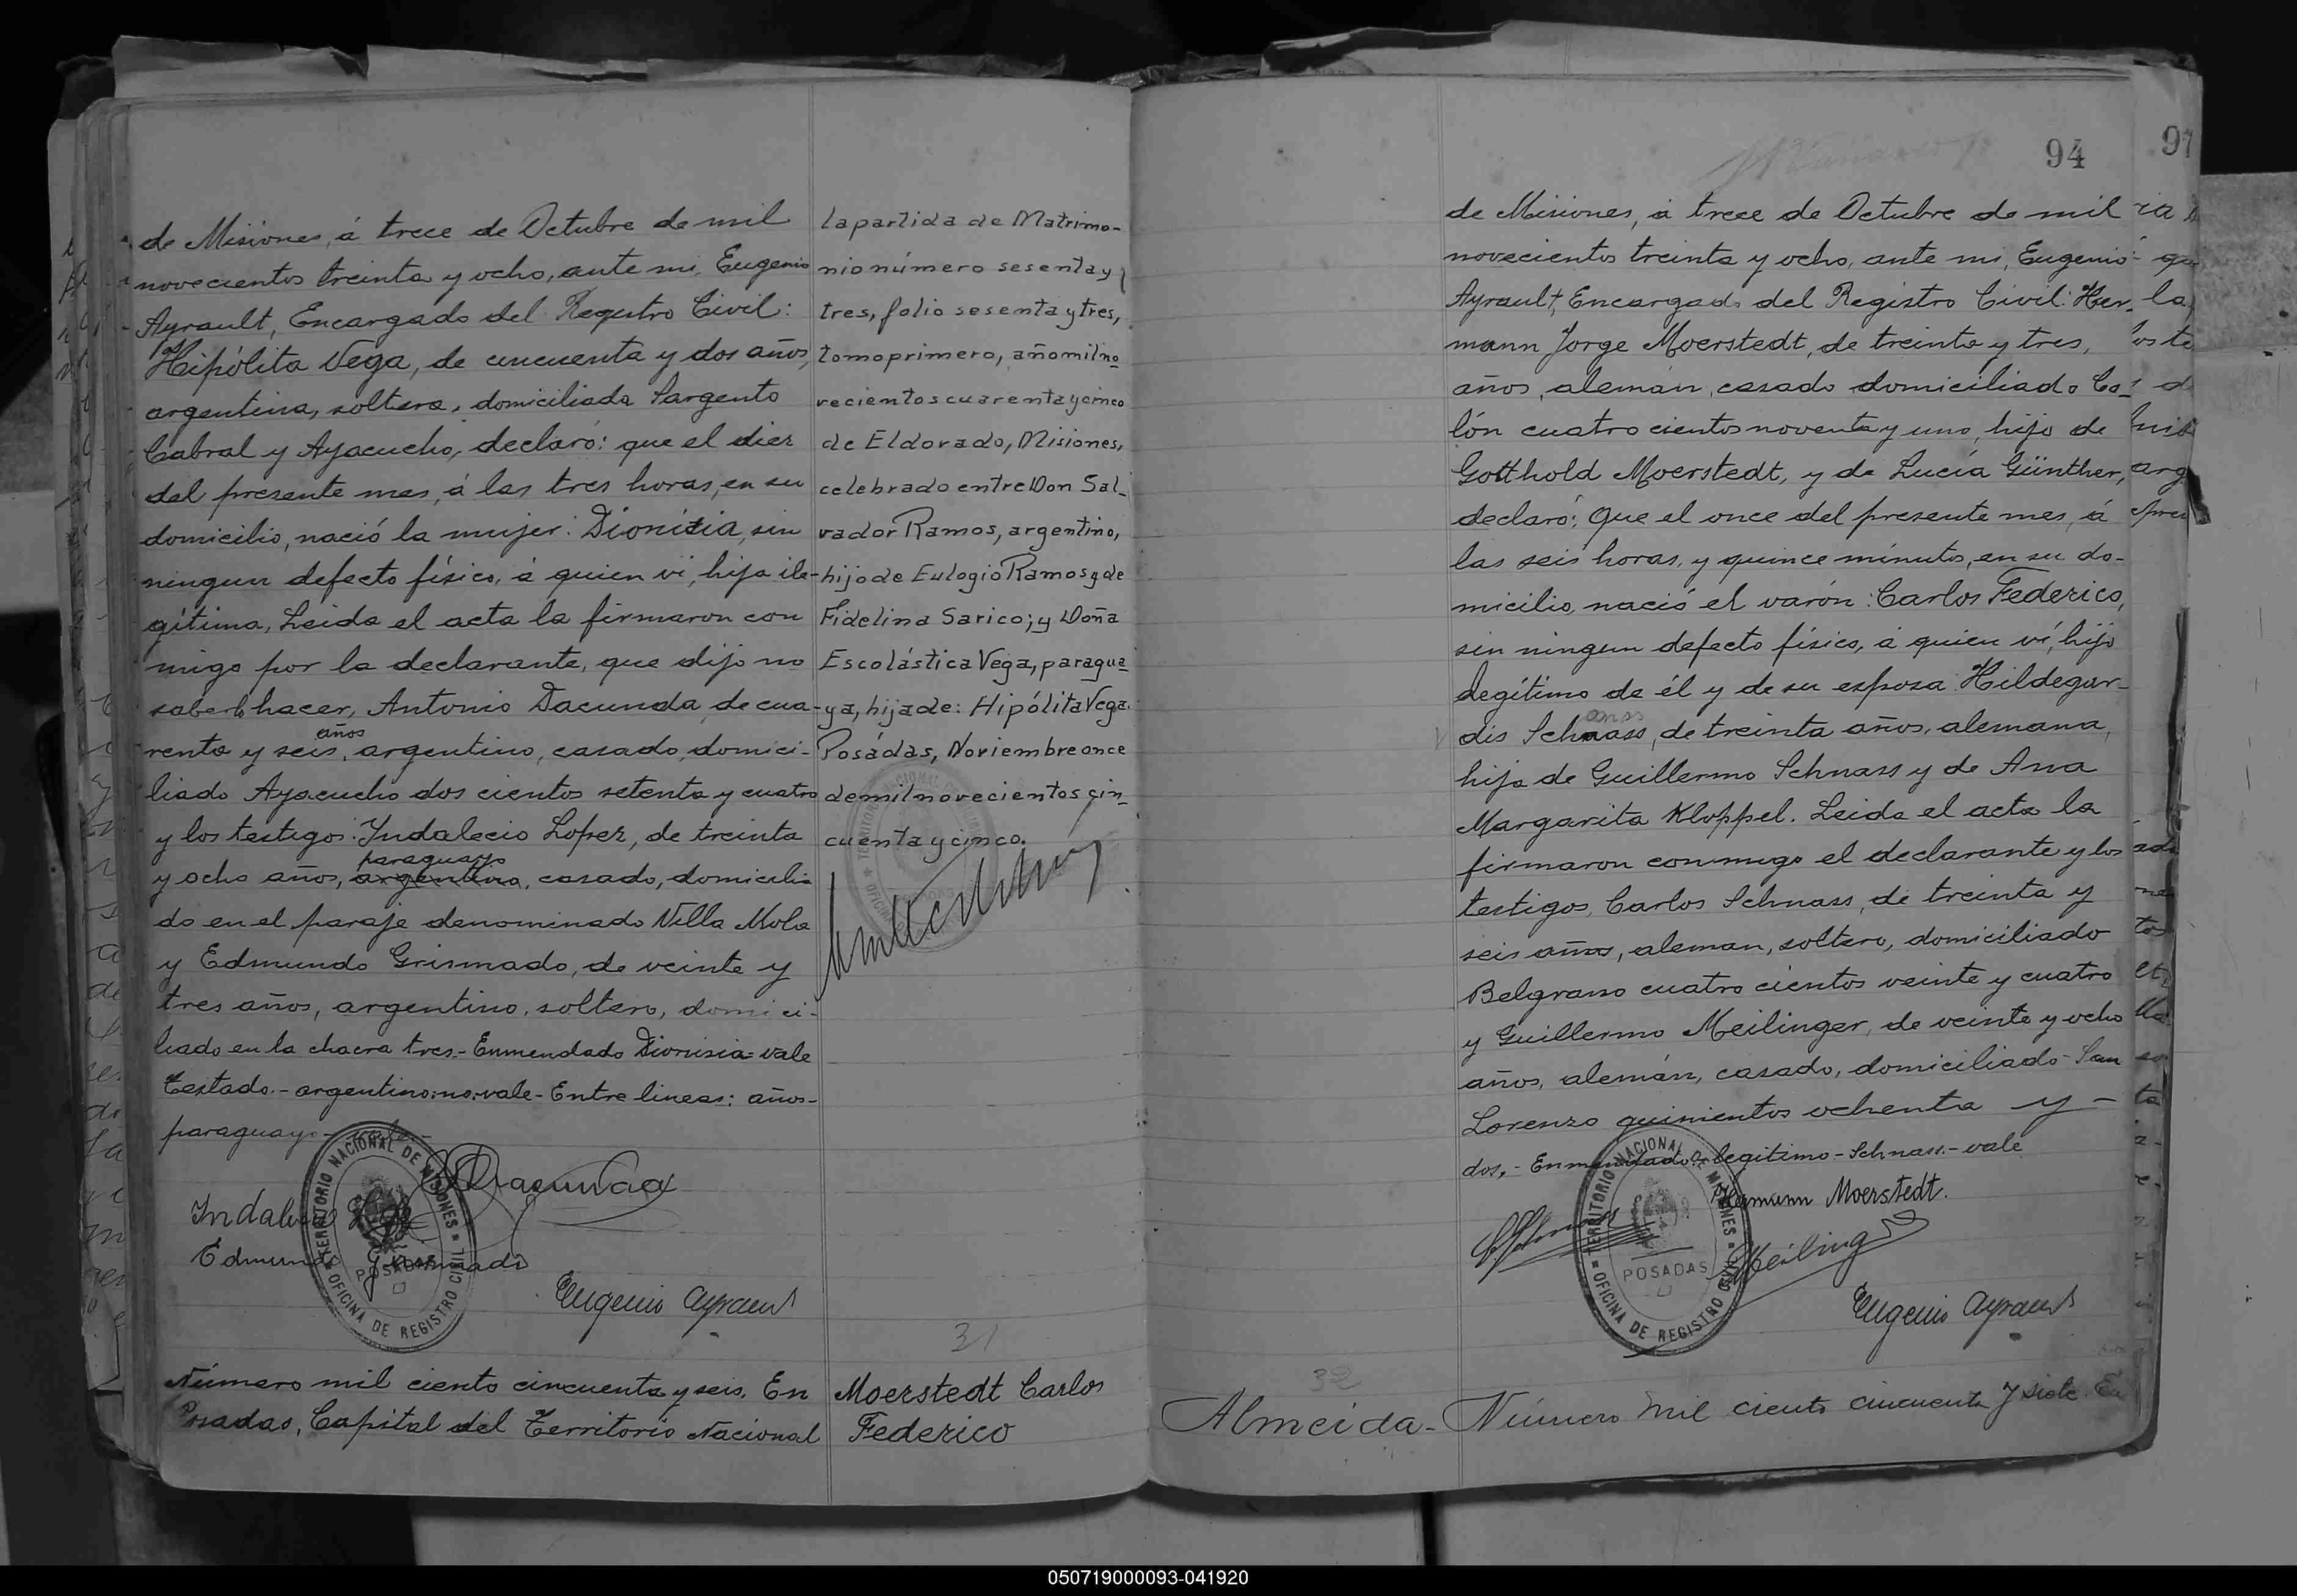 de Misiones, á trece de Octubre de mil
novecientos treinta y ocho, ante mi, Eugenio
Ayrault, Encargado del Registro Civil:
Hipólita Vega, de cincuenta y dos años,
argentina, soltera, domiciliada Sargento
Cabral y Ayacucho, declaró: que el diez
del presente mes, á las tres horas, en su
domicilio, nació la mujer: Dionisia, sin
ningun defecto físico, á quien vi, hija ile-
gítima, Leida el acta la firmaron con
migo por la declarante, que dijo no
saberlo hacer, Antonio Dacunda, de cua-
años
renta y seis, argentino, casado, domici-
liado Ayacucho dos cientos setenta y cuatro
y los testigos: Indalecio Lopez, de treinta
paraguayo
y ocho años, argentino, casado, domicilia
do en el paraje denominado Villa Mola
y Edmundo Grismado, de veinte y
tres años, argentino, soltero, domici-
liado en la chacra tres.- Enmendado Dionisia=vale
Testado.- argentino:no:vale- Entre lineas: años-
paraguayo- vale-
ADacunda
Indalecio
Edmundo Grismado
Eugenio Ayrault
TERRITORIO NACIONAL DE MISIONES
POSADAS
OFICINA DE REGISTRO CIVIL
Número mil ciento cincuenta y seis. En
Posadas, Capital del Territorio Nacional
la partida de Matrimo-
nio número sesenta y
tres, folio sesenta y tres,
tomo primero, año mil no
vecientos cuarenta y cinco
de Eldorado, Misiones,
celebrado entre Don Sal-
vador Ramos, argentino,
hijo de Eulogio Ramos y de
Fidelina Sarico; y Doña
Escolástica Vega, paragua
ya, hija de: Hipólita Vega.
Posadas, Noviembre once
de mil novecientos cin-
cuenta y cinco.
31
Moerstedt Carlos
Federico
94
de Misiones, á trece de Octubre de mil
novecientos treinta y ocho, ante mi, Eugenio
Ayrault, Encargado del Registro Civil: Her-
mann Jorge Moerstedt, de treinta y tres,
años, alemán, casado domiciliado Co-
lón cuatro cientos noventa y uno, hijo de
Gotthold Moerstedt, y de Lucía Günther,
declaró: Que el once del presente mes, á
las seis horas, y quince minutos, en su do-
micilio, nació el varón: Carlos Federico,
sin ningun defecto físico, á quien ví, hijo
legítimo de él y de su esposa Hildegar-
dis Schnass, de treinta años, alemana,
hija de Guillermo Schnass y de Ana
Margarita Kloppel. Leida el acta la
firmaron conmigo el declarante y los
testigos, Carlos Schnass, de treinta y
seis años, aleman, soltero, domiciliado
Belgrano cuatro cientos veinte y cuatro
y Guillermo Meilinger, de veinte y ocho
años, alemán, casado, domiciliado San
Lorenzo quinientos ochenta y -
dos,- Enmendado:-legitimo-Schnass-vale
Hermann Moerstedt.
Eugenio Ayrault
TERRITORIO NACIONAL DE MISIONES
POSADAS
OFICINA DE REGISTRO CIVIL
32
Almeida- Número mil ciento cincuenta y siete. En
97
050719000093-041920